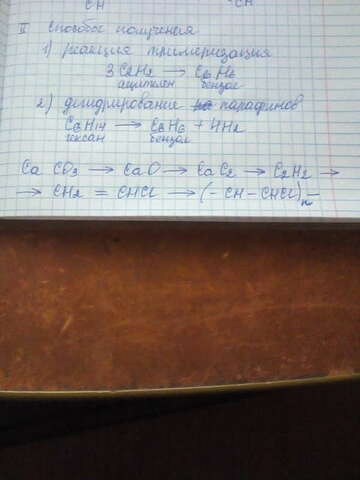 CH CH
II Способы получения
1) реакция тримеризация
3C2H2 → C6H6
ацетилен бензол
2) дегидрирование парафинов
C6H14 → C6H6 + 4H2
гексан бензол
CaCO3 → CaO → CaC2 → C2H2 →
→ CH2 = CHCl → (- CH - CHCl)n -